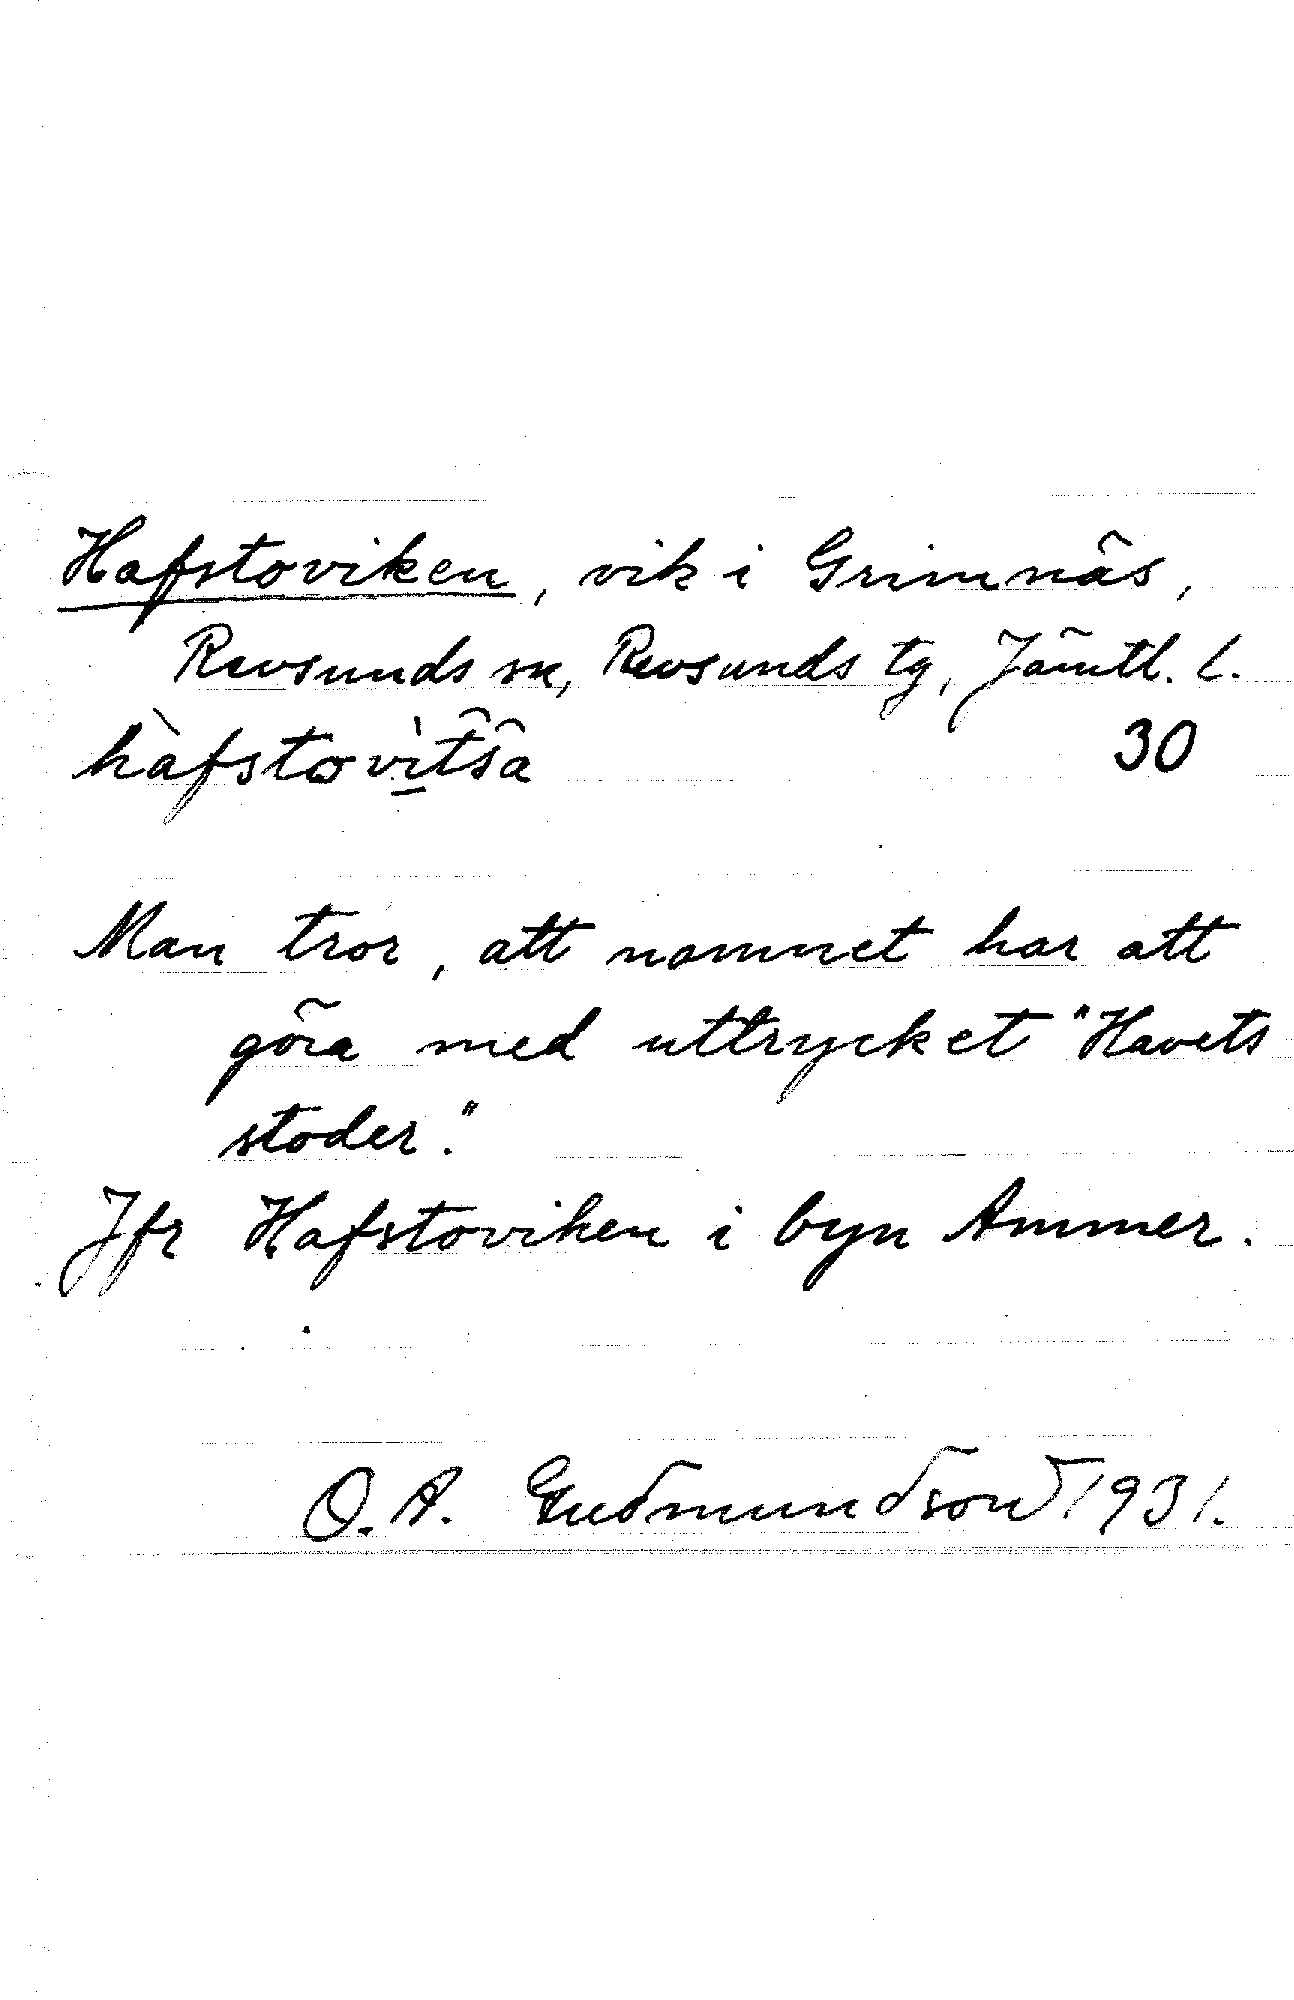 Hafstoviken, vik i Grimnäs,
Revsunds sn, Revsunds tg, Jämtl. l.
hàfstovì̱t͡s͡a 30
Man tror, att namnet har att
göra med uttrycket "Havets
stoder."
Jfr Hafstoviken i byn Ammer.
O. A. Gudmundson 1931.